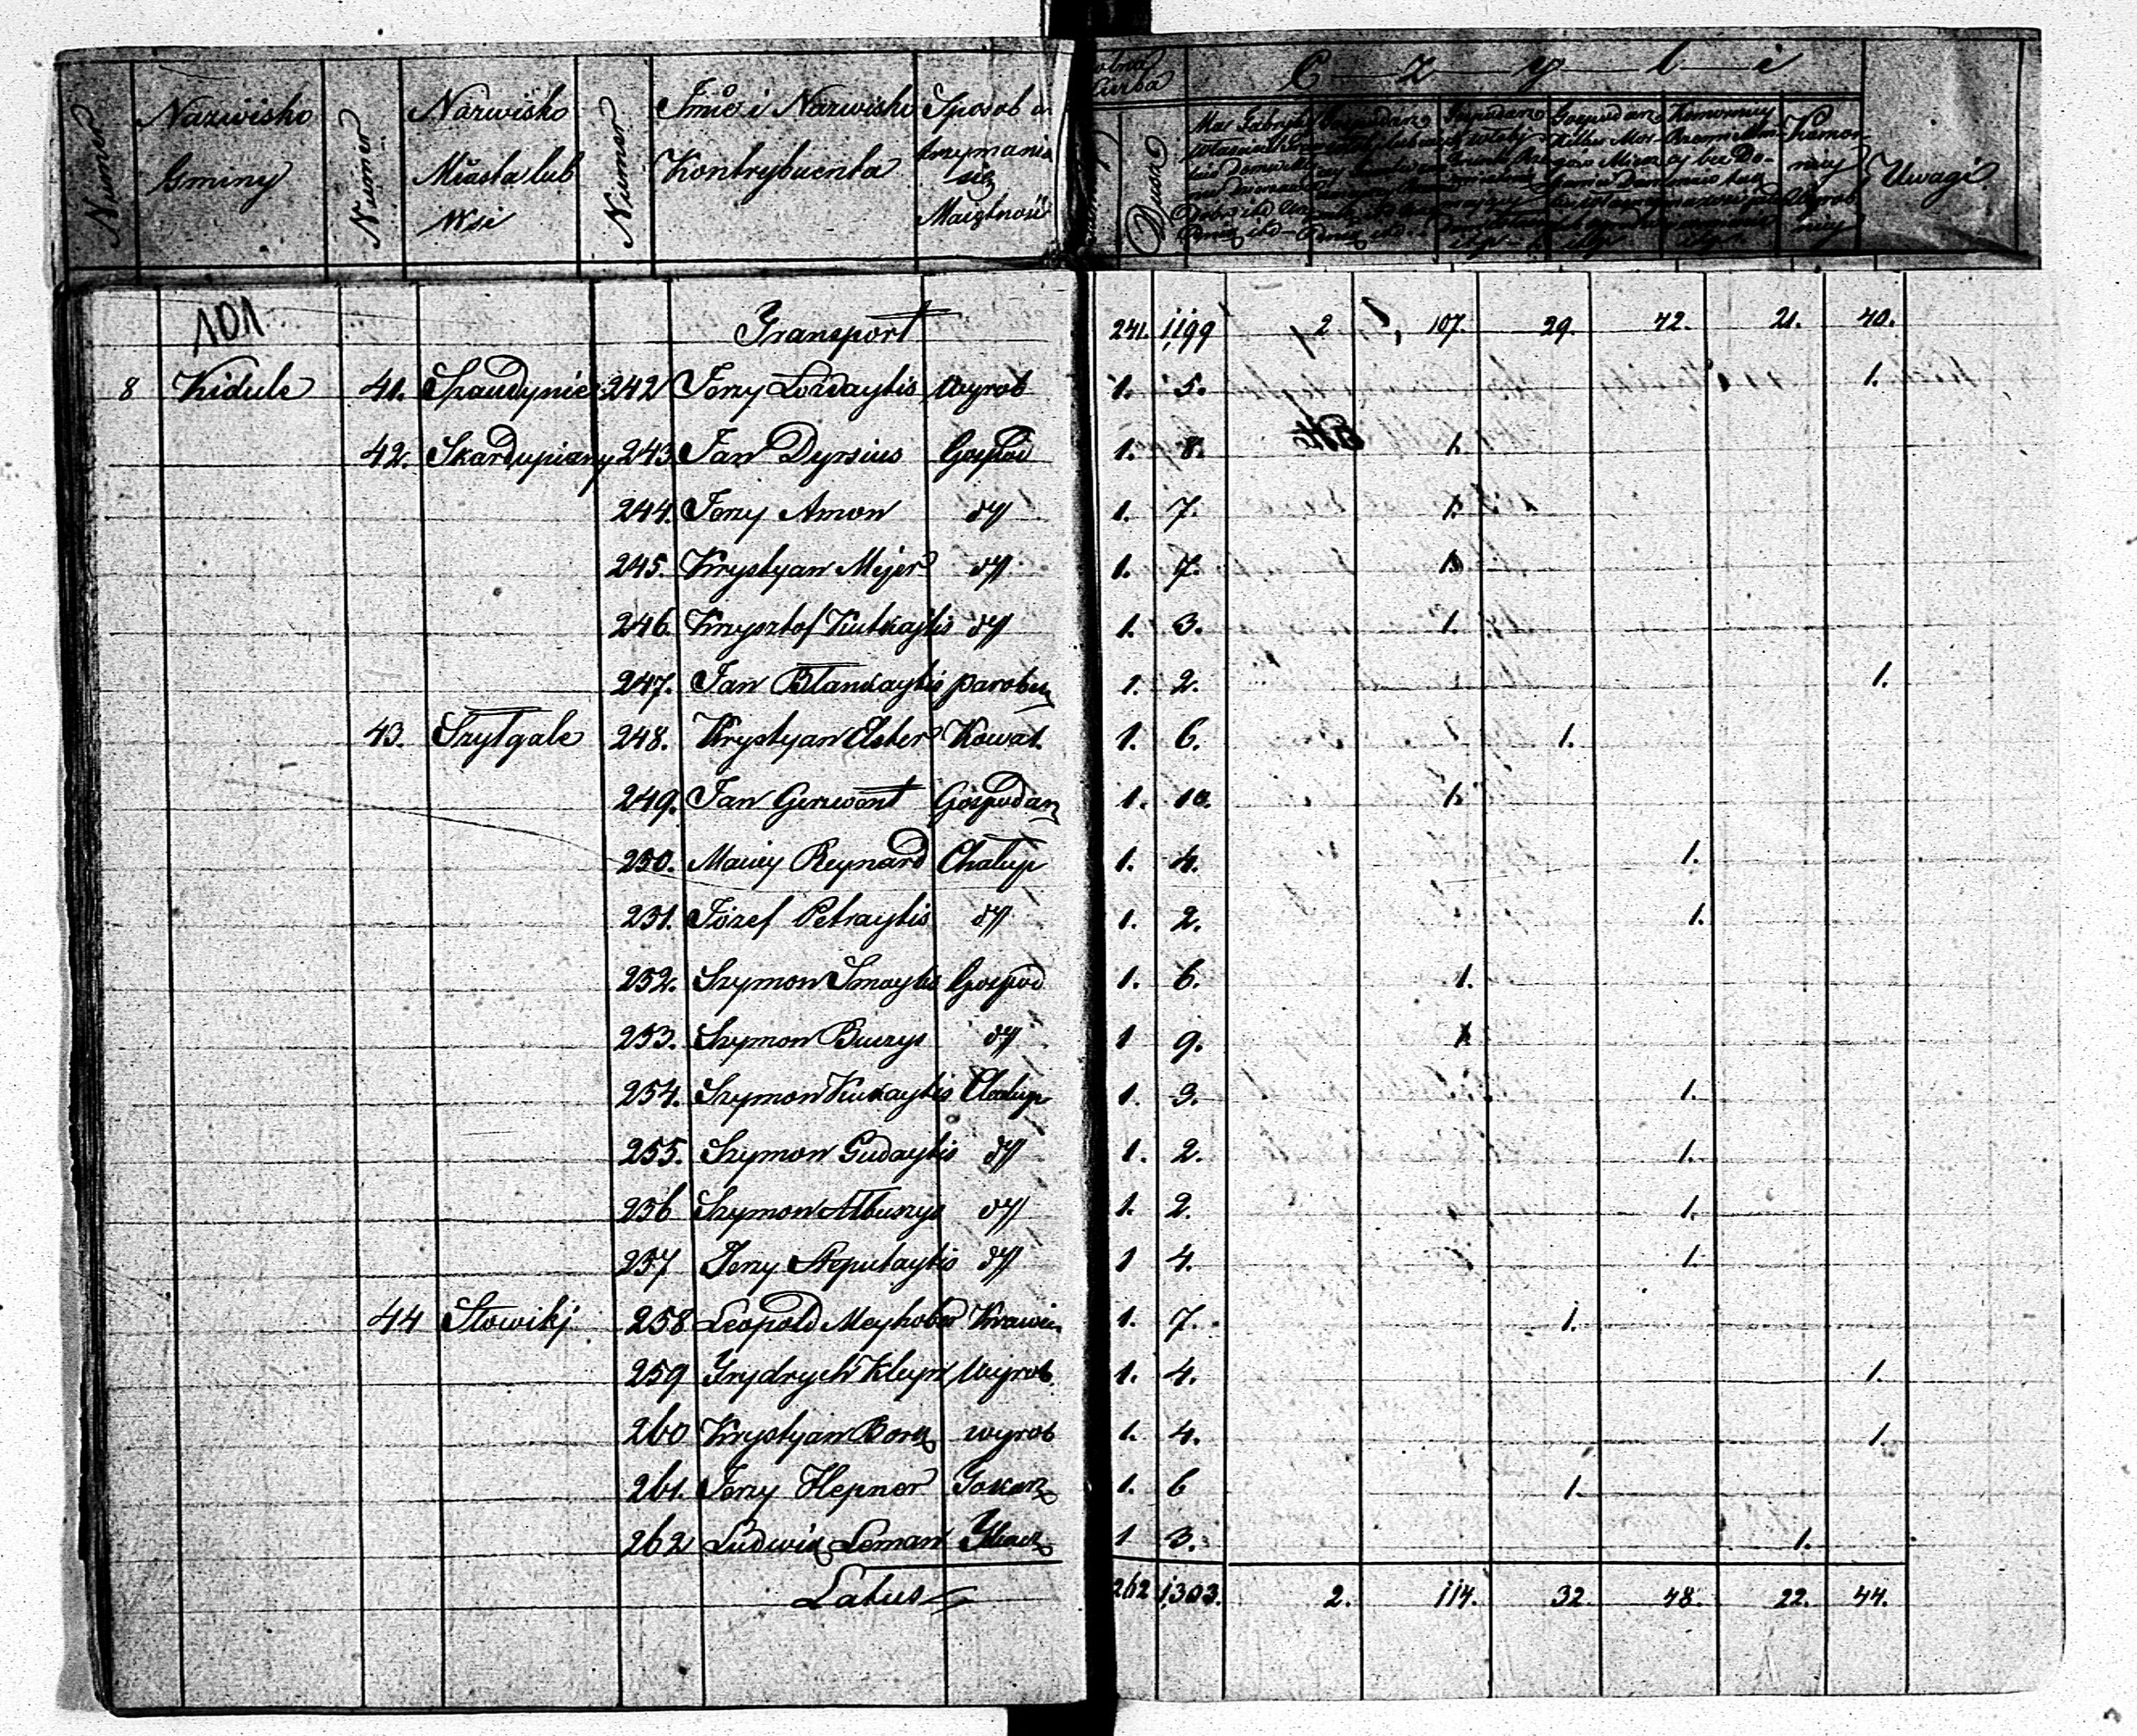 Numer Nazwisko Gminy Numer Nazwisko Miasta lub Wsi Numer Imie i Nazwisko Kontrybuenta Sposob u trzymania się Maiętność
Czyli
Dusz Komornicy Wyrobnicy Uwagi
101 Transport 241. 1,199 2. 107. 29. 42. 21. 40.
8 Kidule 41. Szaudynie 242 Jerzy Lordaytis Wyrob 1. 5. 1.
42. Skardupiany 243. Jan Dyrsius Gospod 1. 8. 1.
244. Jerzy Amon dtt 1. 7. 1.
245. Krystyan Mejer dtt 1. 7. 1.
246. Krzysztof Kutkajtis dtt 1. 3. 1.
247. Jan Blankaytis parobek 1. 2. 1.
43. Szylgale 248. Krystyan Elster Kowal. 1. 6. 1.
249. Jan Gerwent Gospodarz 1. 10. 1.
250. Maciey Reynard Chałup 1. 4. 1.
251. Józef Petraytis dtt 1. 2. 1.
252. Szymon Smaytis Gospod 1. 6. 1.
253. Szymon Burzys dtt 1 9. 1
254. Szymon Kukaytis Chałup 1. 3. 1.
255. Szymon Gudaytis dtt 1. 2. 1.
256 Szymon Albuszys dtt 1. 2. 1.
257 Jerzy Neputaytis dtt 1 4. 1.
44 Słowikj 258 Leopold Meyhober Krawiec 1. 7. 1.
259 Frydrych Kleyn Wyrob. 1. 4. 1.
260 Krystyan Bork wyrob 1. 4. 1.
261. Jerzy Hepner Tokarz 1. 6 1.
262 Ludwik Leman Tkacz 1 3. 1.
Latus 262 1,303. 2. 114. 32. 48. 22. 44.